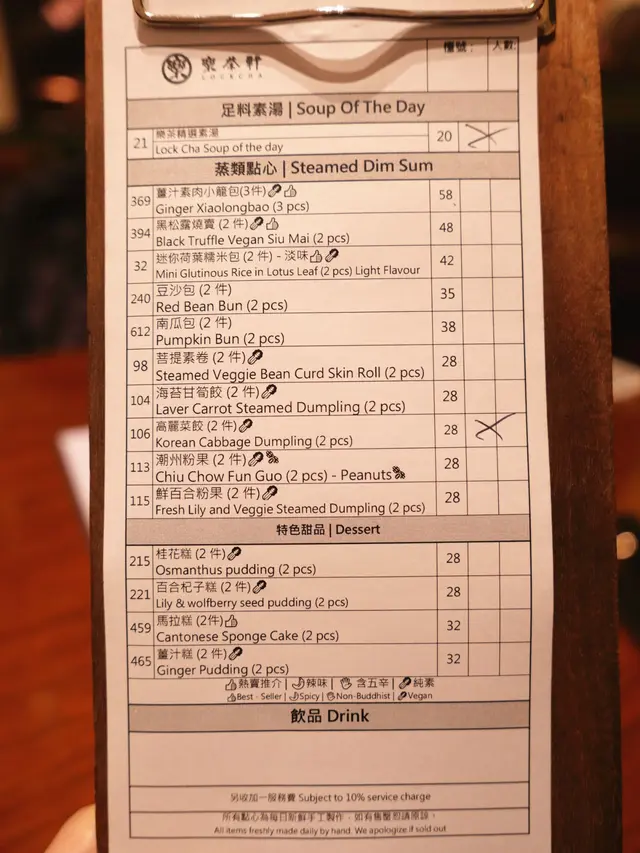 樂茶軒
LOCKCHA
檯號：
人數:
足料素湯 | Soup Of The Day
21 樂茶精選素湯 20
Lock Cha Soup of the day
蒸類點心 | Steamed Dim Sum
369 薑汁素肉小籠包(3件) 58
Ginger Xiaolongbao (3 pcs)
394 黑松露燒賣 (2 件) 48
Black Truffle Vegan Siu Mai (2 pcs)
32 迷你荷葉糯米包 (2 件) - 淡味 42
Mini Glutinous Rice in Lotus Leaf (2 pcs) Light Flavour
240 豆沙包 (2 件) 35
Red Bean Bun (2 pcs)
612 南瓜包 (2 件) 38
Pumpkin Bun (2 pcs)
98 菩提素卷 (2 件) 28
Steamed Veggie Bean Curd Skin Roll (2 pcs)
104 海苔甘筍餃 (2 件) 28
Laver Carrot Steamed Dumpling (2 pcs)
106 高麗菜餃 (2 件) 28
Korean Cabbage Dumpling (2 pcs)
113 潮州粉果 (2 件) 28
Chiu Chow Fun Guo (2 pcs) - Peanuts
115 鮮百合粉果 (2 件) 28
Fresh Lily and Veggie Steamed Dumpling (2 pcs)
特色甜品 | Dessert
215 桂花糕 (2 件) 28
Osmanthus pudding (2 pcs)
221 百合杞子糕 (2 件) 28
Lily & wolfberry seed pudding (2 pcs)
459 馬拉糕 (2件) 32
Cantonese Sponge Cake (2 pcs)
465 薑汁糕 (2 件) 32
Ginger Pudding (2 pcs)
熱賣推介 | 辣味 | 含五辛 | 純素
Best - Seller | Spicy | Non-Buddhist | Vegan
飲品 Drink
另收加一服務費 Subject to 10% service charge
所有點心為每日新鮮手工製作，如有售罄懇請原諒。
All items freshly made daily by hand. We apologize if sold out